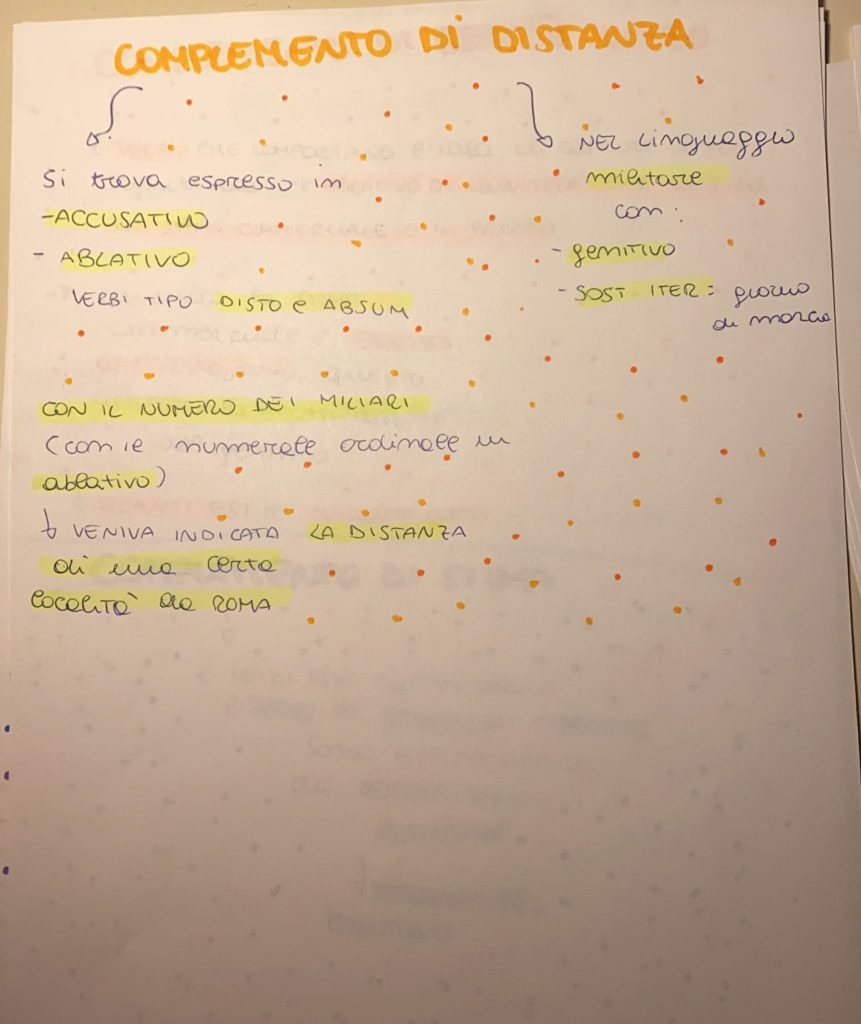 COMPLEMENTO DI DISTANZA
Si trova espresso in
-ACCUSATIVO
- ABLATIVO
VERBI TIPO DISTO e ABSUM
CON IL NUMERO DEI MILIARI
(con le numerale ordinale in
ablativo)
↳ VENIVA INDICATA LA DISTANZA
di una certa
località da ROMA
NEL linguaggio
militare
con:
- genitivo
- SOST ITER = giorno
di marcia